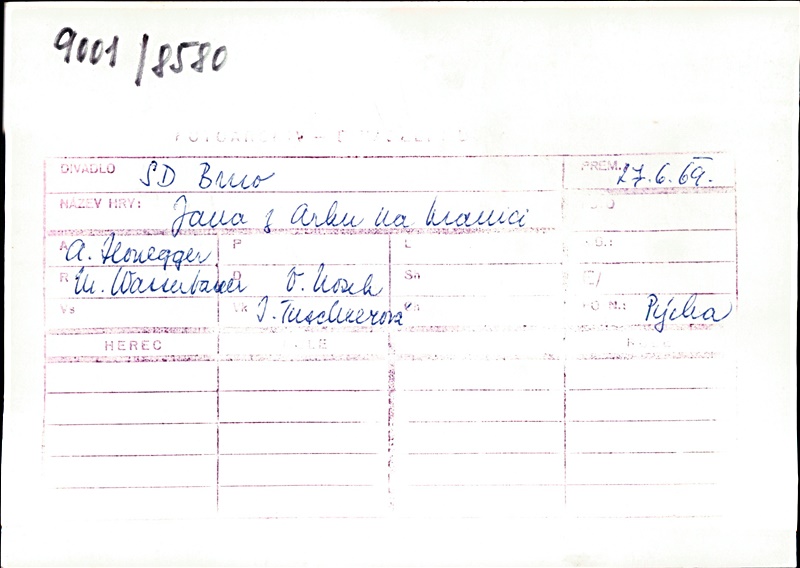 9001/8580
DIVADLO SD Brno PREM. 27.6.69.
NÁZEV HRY: Jana z Arku na hranici
A A. Honegger P L
R M. Wasserbauer D V. Nosek Sn
Vs Vk I. Tuschnerová FO N.: Pýcha
HEREC